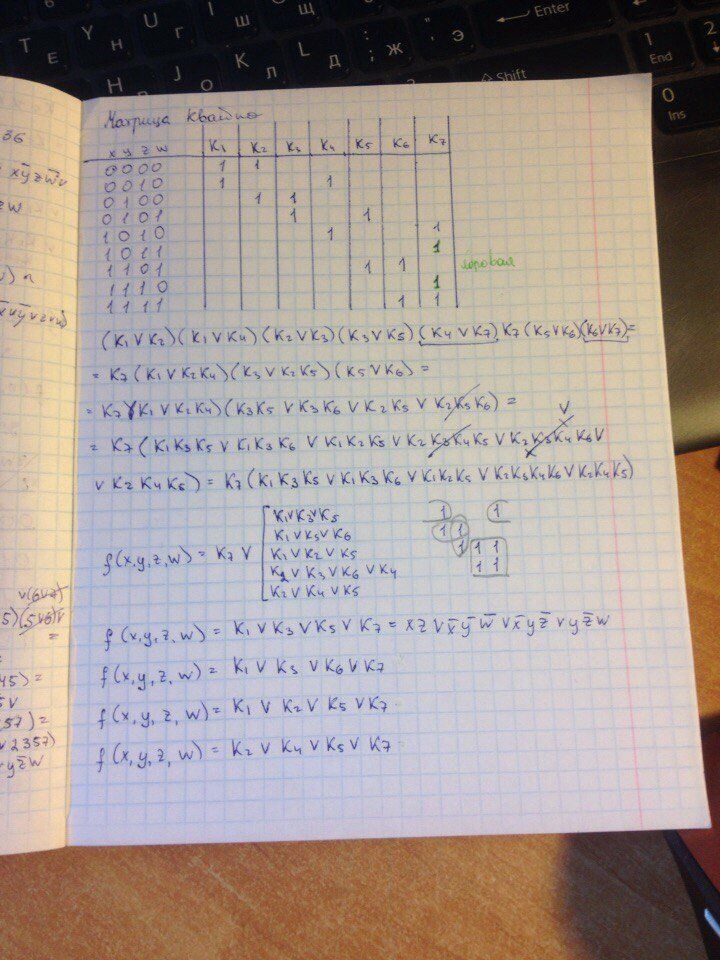 Матрица Квайна
x y z w K₁ K₂ K₃ K₄ K₅ K₆ K₇
0000 1 1
0010 1 1
0100 1 1
0101 1 1
1010 1 1
1011 1
1101 1 1 ядровая
1110 1
1111 1 1
(K₁∨K₂)(K₁∨K₄)(K₂∨K₃)(K₃∨K₅)(K₄∨K₇)K₇(K₅∨K₆)(K₆∨K₇)=
= K₇(K₁∨K₂K₄)(K₃∨K₂K₅)(K₅∨K₆) =
= K₇(K₁∨K₂K₄)(K₃K₅∨K₃K₆∨K₂K₅∨K₂K₅K₆) =
= K₇(K₁K₃K₅∨K₁K₃K₆∨K₁K₂K₅∨K₂K₃K₄K₅∨K₂K₃K₄K₆∨
∨K₂K₄K₅) = K₇(K₁K₃K₅∨K₁K₃K₆∨K₁K₂K₅∨K₂K₃K₄K₆∨K₂K₄K₅)
K₁∨K₃∨K₅
K₁∨K₃∨K₆
f(x,y,z,w) = K₇ ∨ K₁∨K₂∨K₅
K₂∨K₃∨K₆∨K₄
K₂∨K₄∨K₅
1 1
1 1
1 1 1
1 1
f(x,y,z,w) = K₁∨K₃∨K₅∨K₇ = xz∨x̄ȳw̄∨x̄yz̄∨yz̄w
f(x,y,z,w) = K₁∨K₃∨K₆∨K₇
f(x,y,z,w) = K₁∨K₂∨K₅∨K₇
f(x,y,z,w) = K₂∨K₄∨K₅∨K₇